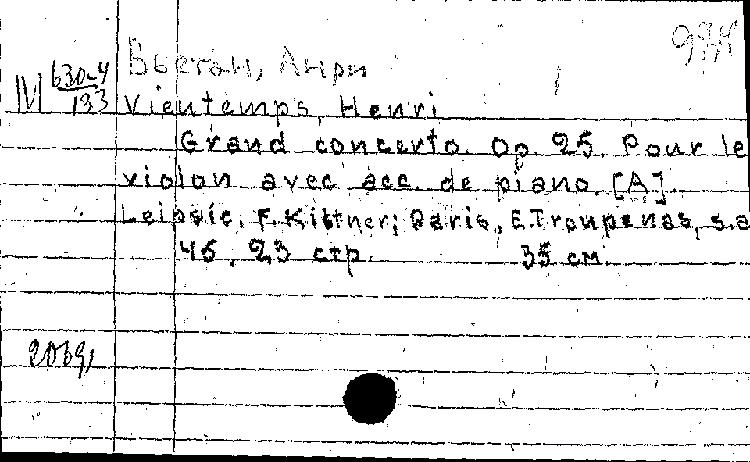 Вьетан, Анри
М 630-4
133
Vieutemps, Henri
Grand concerto. Op. 25. Pour le
violon avec acc. de piano. [A].
Leipsic, F. Kistner; Paris, E. Troupenas, s.a
45, 23 стр. 35 см.